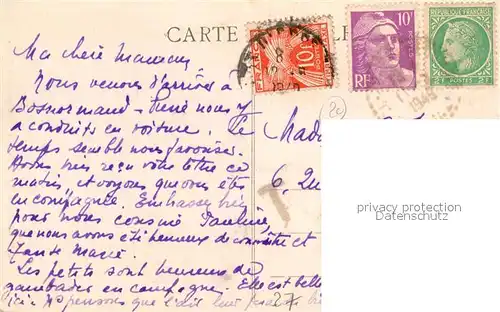 CARTE
Ma chère Maman,
Nous venons d'arriver à
Bosnormand - René nous y
a conduits en voiture. Le
temps semble nous favoriser.
Avons bien reçu votre lettre ce
matin, et voyons que vous êtes
en compagnie. Embrassez bien
pour nous cousine Pauline,
que nous avons été heureux de connaître et
Tante Marie.
Les petits sont heureux de
gambader en campagne. Elle est belle
ici: ns pensons que c'est leur
FRANCE
10F
10F
POSTES
RF
REPUBLIQUE FRANÇAISE
2F POSTES 2F
Mada
6,
T
27
privacy protection
Datenschutz